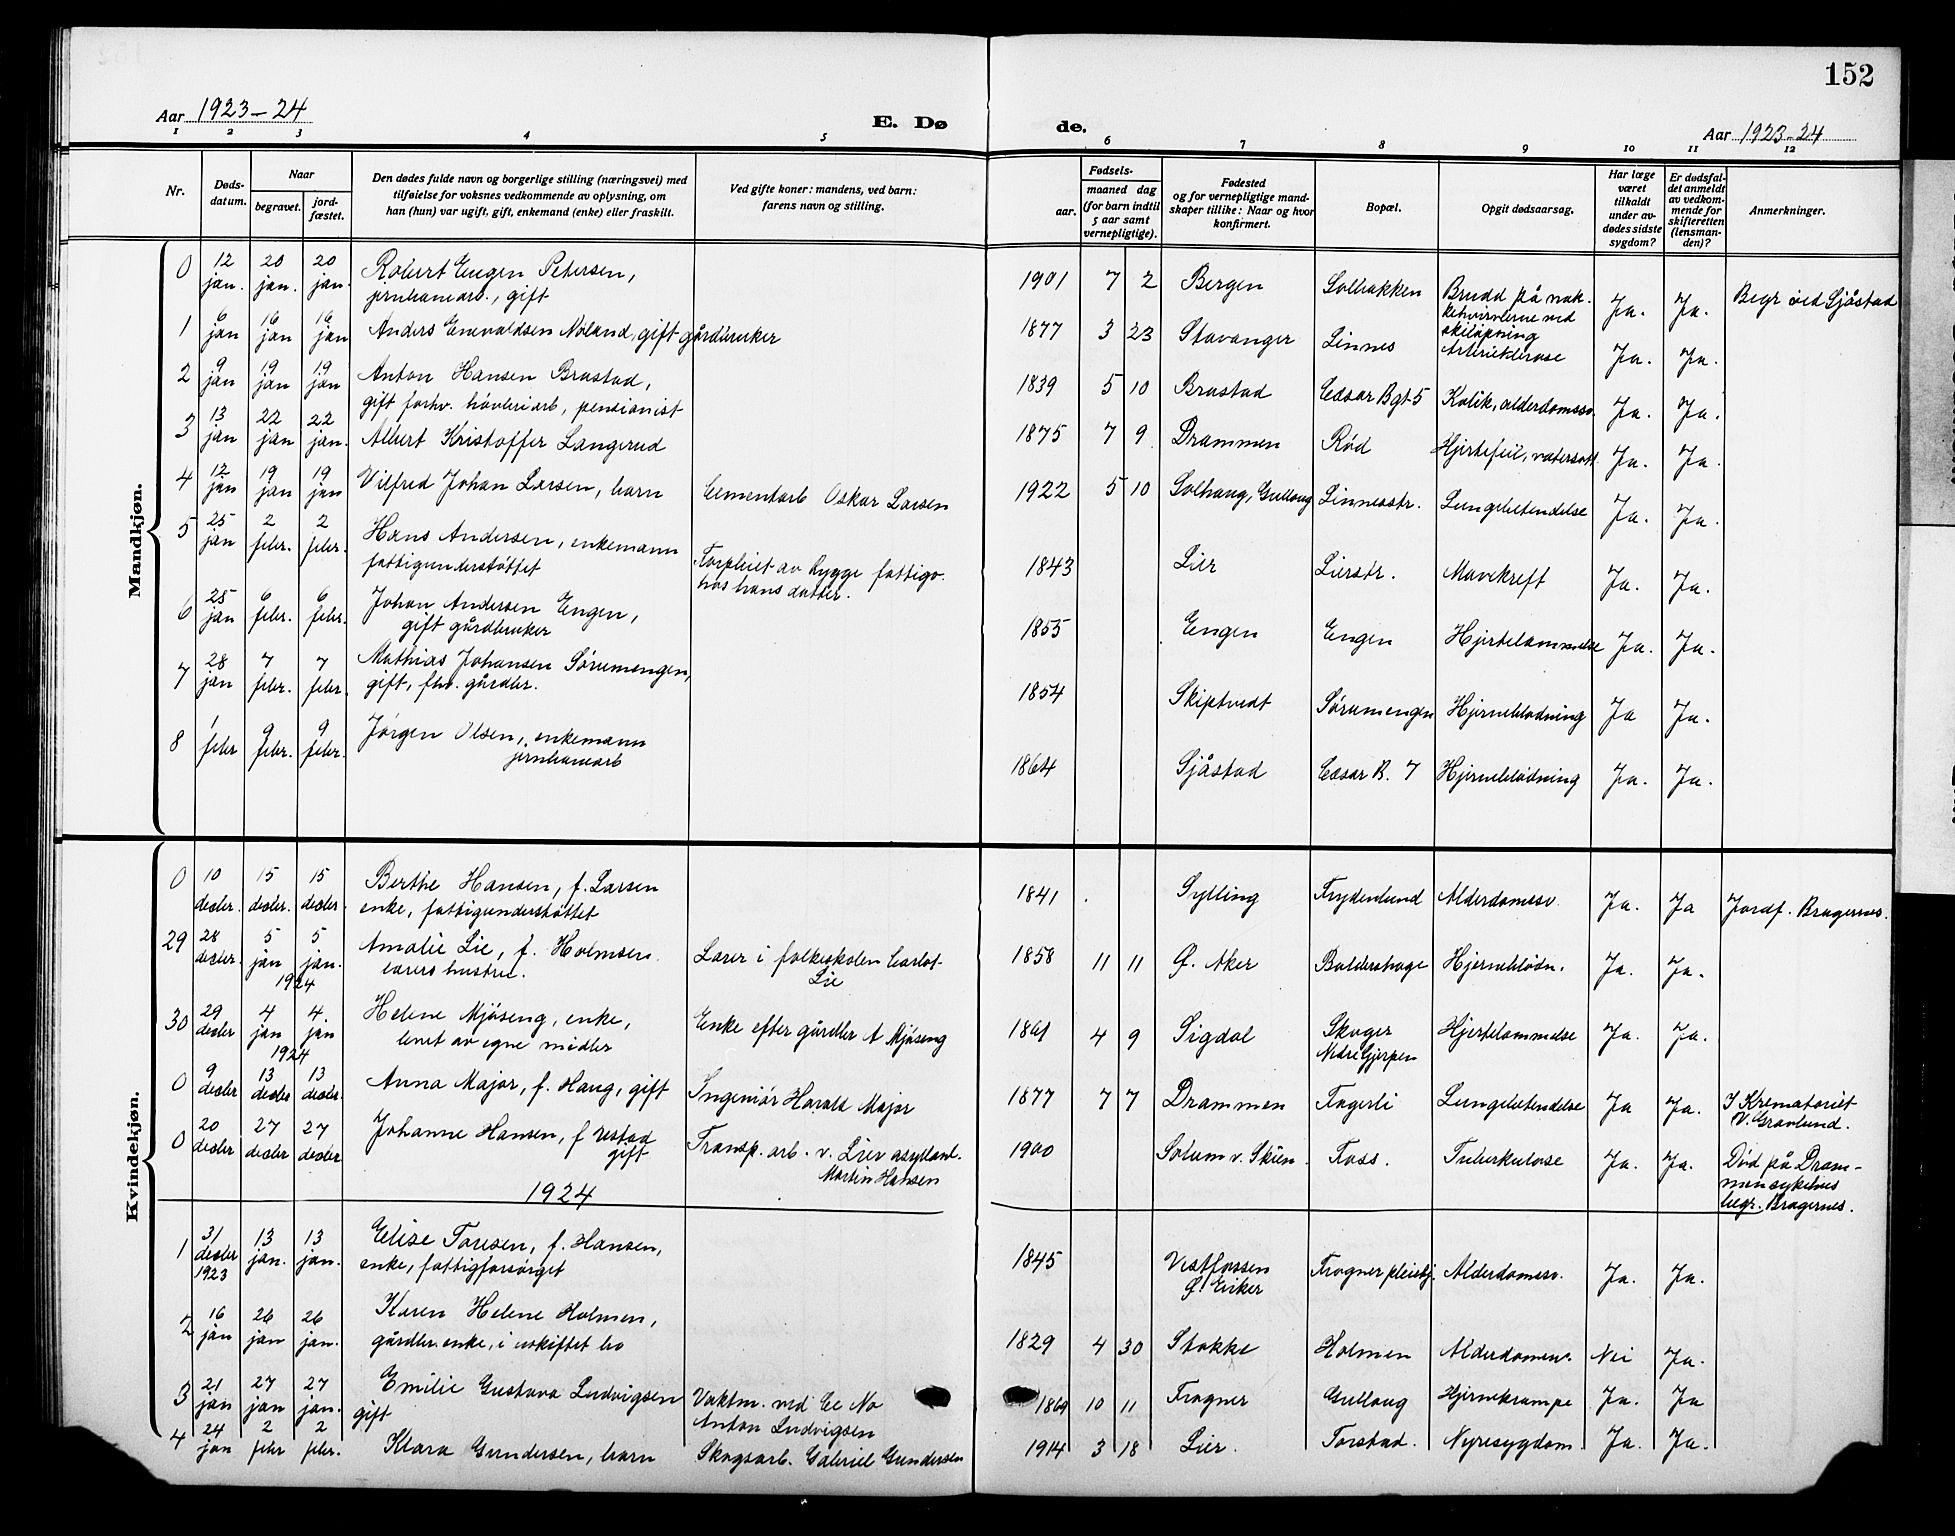 152
Aar 1923-24
E. Dø de.
Aar 1923-24
1 2 3 4 5 6 7 8 9 10 11 12
Nr.
Døds-
datum.
Naar
begravet.
jord-
fæstet.
Den dødes fulde navn og borgerlige stilling (næringsvei) med
tilføielse for voksnes vedkommende av oplysning, om
han (hun) var ugift, gift, enkemand (enke) eller fraskilt.
Ved gifte koner: mandens, ved barn:
farens navn og stilling.
Fødsels-
aar.
maaned dag
(for barn indtil
5 aar samt
vernepligtige).
Fødested
og for vernepligtige mand-
skaper tillike: Naar og hvor
konfirmert.
Bopæl.
Opgit dødsaarsag.
Har læge
været
tilkaldt
under av-
dødes sidste
sygdom?
Er dødsfal-
det anmeldt
av vedkom-
mende for
skifteretten
(lensman-
den)?
Anmerkninger.
Mandkjøn.
0 12 jan. 20 jan. 20 jan. Robert Engen Petersen,
jernbanearb., gift
1901 7 2 Bergen Solbakken Brudd på nak-
kehvirvlerne ved
skiløpning
Ja. Ja. Begr ved Sjåstad
1 6 jan 16 jan 16 jan Anders Enevaldsen Nøland, gift gårdbruker
1877 3 23 Stavanger Linnes Arteriosklerose Ja. Ja.
2 9 jan 19 jan 19 jan Anton Hansen Brastad,
gift forhv. høvleriarb, pensionist
1839 5 10 Brastad Cæsar Bgt 5 Kolik, alderdomssv. Ja. Ja.
3 13 jan 22 jan 22 jan. Albert Kristoffer Langerud
1875 7 9 Drammen Rød Hjertefeil, vatersott. Ja. Ja.
4 12 jan 19 jan 19 jan Vilfred Johan Larsen, barn Cementarb Oskar Larsen
1922 5 10 Solhaug, Gullaug Linnesstr. Lungebetendelse Ja. Ja.
5 25 jan 2 febr. 2 febr. Hans Andersen, enkemann
fattigunderstøttet
Forpleiet av Rygge fattigv.
hos hans datter.
1843 Lier Lierstr. Mavekreft Ja. Ja.
6 25 jan 6 febr. 6 febr. Johan Andersen Engen,
gift gårdbruker
1855 Engen Engen Hjertelammelse Ja. Ja.
7 28 jan 7 febr. 7 febr. Mathias Johansen Sørumengen,
gift, fhv. gårdbr.
1854 Skiptvedt Sørumengen Hjerneblødning Ja Ja.
8 1 febr 9 febr. 9 febr. Jørgen Olsen, enkemann
jernbanearb
1864 Sjåstad Cæsar B. 7 Hjerneblødning Ja. Ja.
Kvindekjøn.
0 10 decbr. 15 decbr. 15 decbr. Berthe Hansen, f. Larsen
enke, fattigunderstøttet
1841 Sylling Frydenlund Alderdomssv. Ja. Ja Jordf. Bragernes.
29 28 decbr. 5 jan 5 jan. 1924 Amalie Lie, f. Holmsen
lærers hustru.
Lærer i folkeskolen Carlot
Lie
1858 11 11 Ø. Aker Baldershage Hjerneblødn. Ja. Ja.
30 29 decbr 4 jan 4. jan 1924 Helene Mjøseng, enke,
levet av egne midler
Enke efter gårdbr A Mjøseng
1861 4 9 Sigdal Skoger
Nedre Gjerpen Hjertelammelse Ja. Ja.
0 9 decbr 13 decbr 13 decbr. Anna Major, f. Haug, gift Ingeniør Harald Major
1877 7 7 Drammen Fagerli Lungebetendelse Ja Ja. I Krematoriet
V. Gravlund.
0 20 decbr 27 decbr 27 decbr Johanne Hansen, f
gift
Transp. arb. v. Lier asylanl.
Martin Hansen
1900 Solum v. Skien. Foss. Tuberkulose Ja. Ja. Død på Dram-
men sykehus
begr. Bragernes.
1924
1 31 decbr 1923 13 jan. 13 jan. Elise Toresen, f. Hansen,
enke, fattigforsørget
1845 Vestfossen
Ø. Eiker Frogner pleiehj. Alderdomssv. Ja. Ja.
2 16 jan 26 jan 26 jan. Karen Helene Holmen,
gårdbr. enke, i uskiftet bo
1829 4 30 Stokke Holmen Alderdomsv. Nei Ja.
3 21 jan 27 jan 27 jan. Emilie Gustava Ludvigsen
gift
Vaktm. ved
Anton Ludvigsen
1869 10 11 Frogner Gullaug Hjernekrampe Ja. Ja
4 24 jan 2 febr 2 febr. Klara Gundersen, barn Skogsarb. Gabriel Gundersen
1914 3 18 Lier. Torstad. Nyresygdom. Ja. Ja.